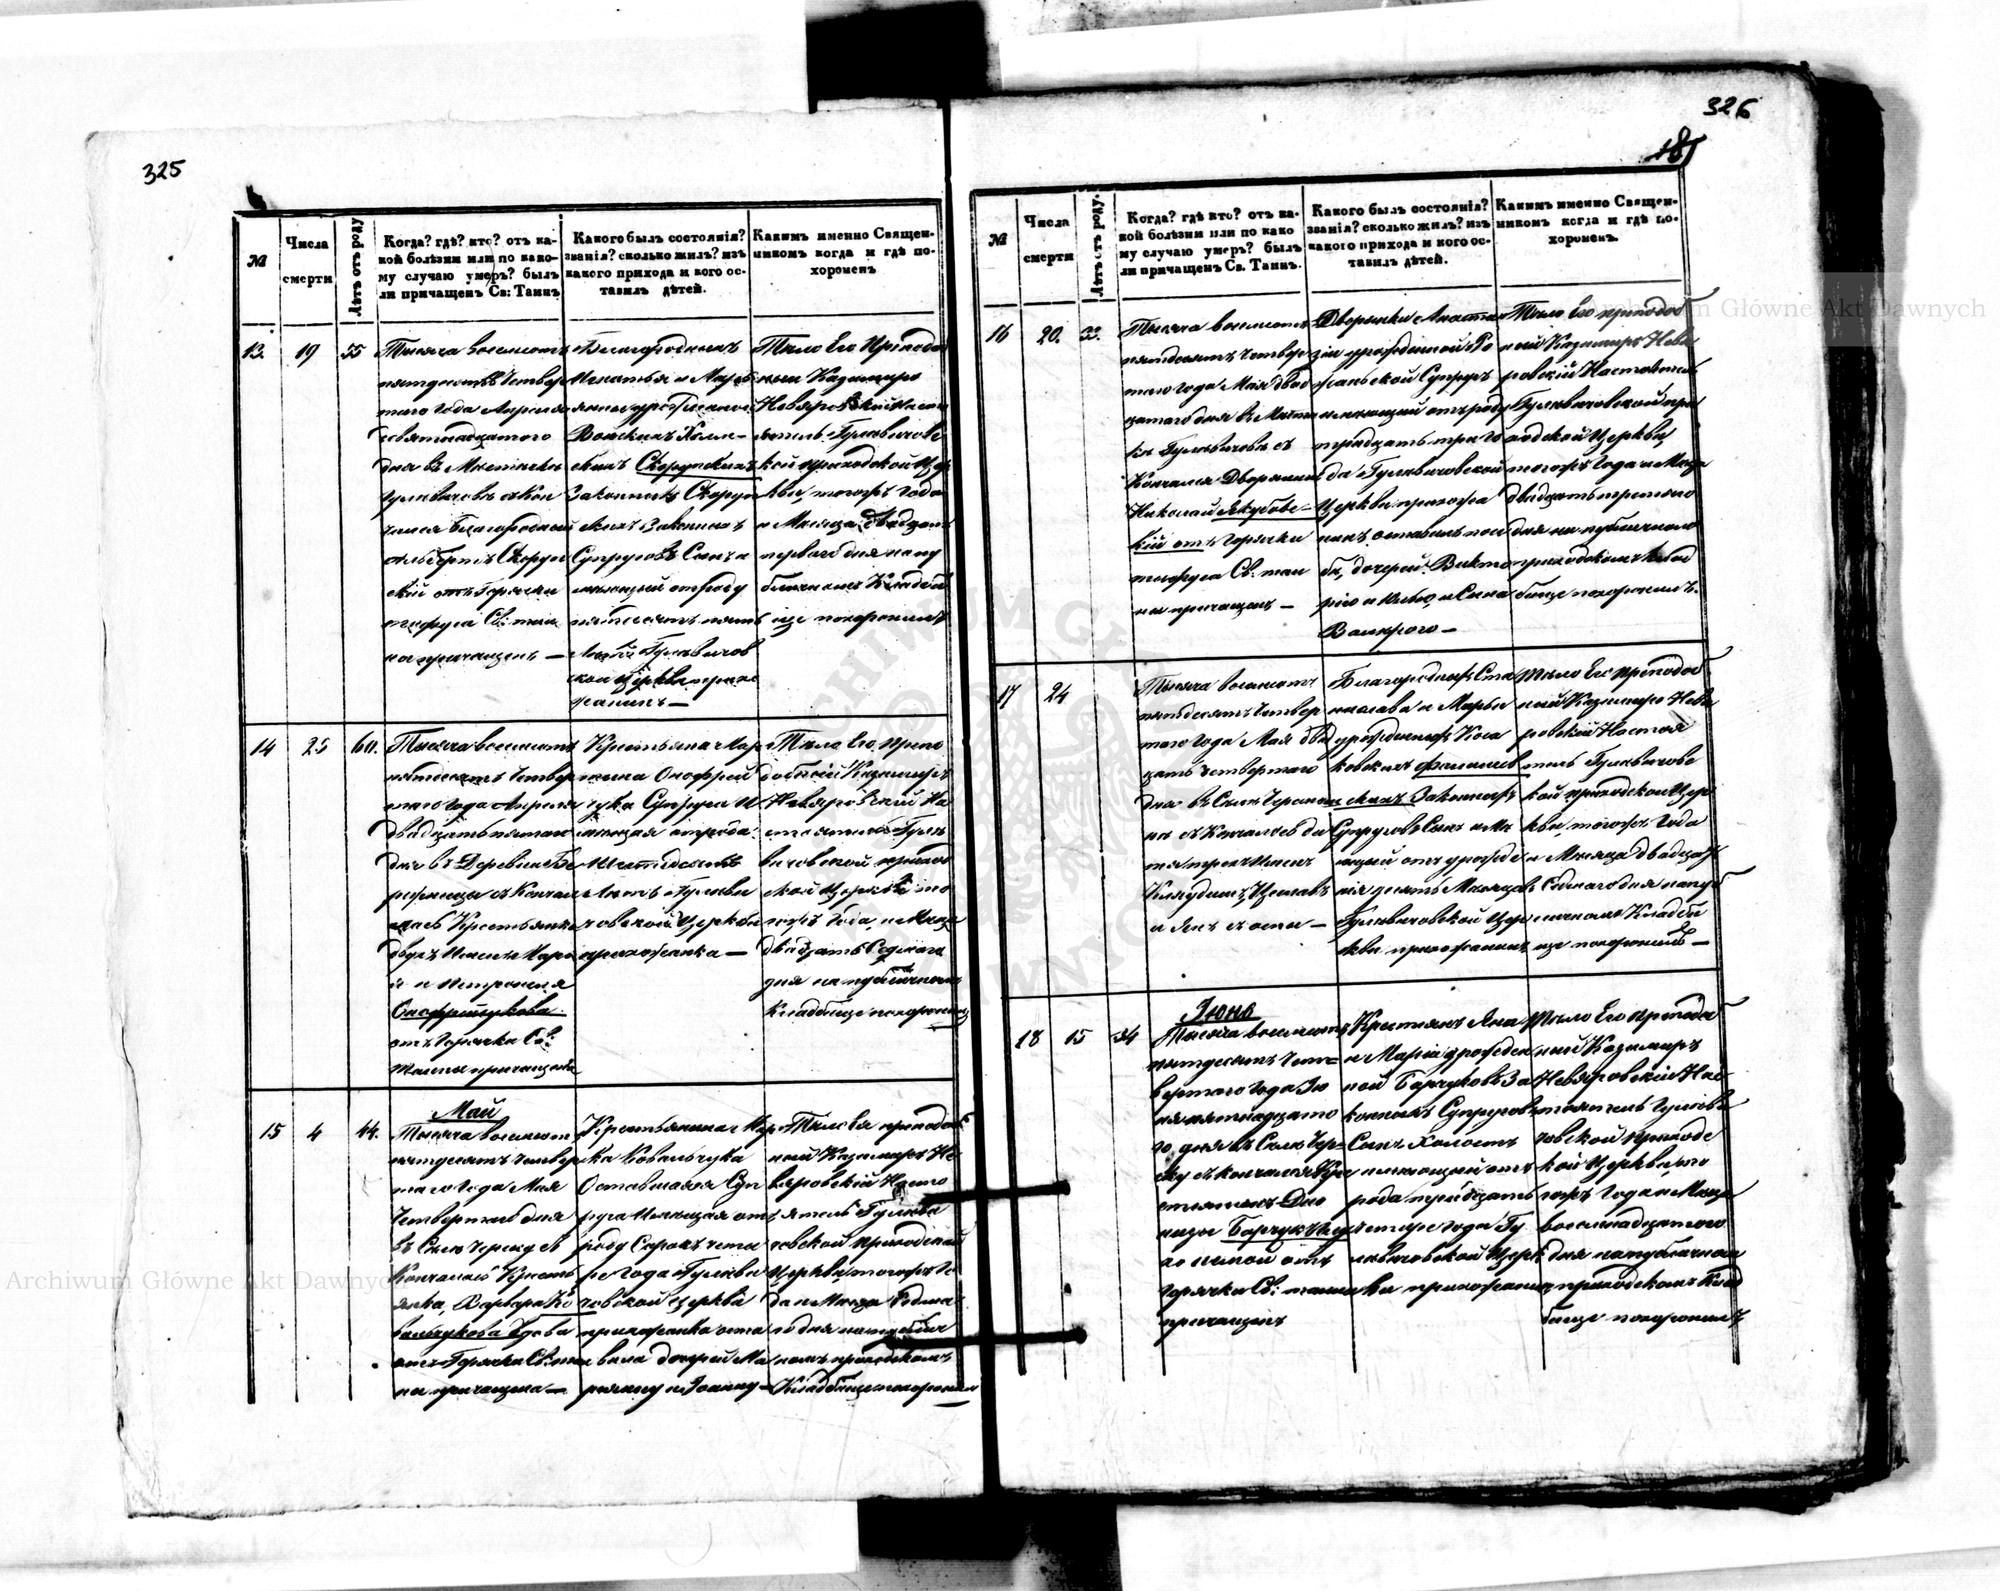 325
№
Числа
смерти
Лѣтъ отъ роду
Когда? гдѣ? кто? отъ ка-
кой болѣзни или по како-
му случаю умеръ? былъ
ли причащенъ Св: Таинъ
Какого былъ состоянія?
званія? сколько жилъ? изъ
какого прихода и кого ос-
тавилъ дѣтей.
Какимъ именно Священ-
никомъ когда и гдѣ по-
хороненъ
13.
19
55
Тысяча восемсотъ
пятдесятъ четвер
таго года Апреля
девятнадцатого
дня въ Мѣстечкѣ
Гулевичовѣ скон
чался Благородный
Альбертъ Скоруп
скій отъ Горячки
Св: таи
ны причащенъ —
Благородныхъ
Игнатья и Марь
яны урожденной
Скорупскихъ
Законныхъ
Супруговъ Сынъ и
мѣющій отроду
пятьдесятъ пять
Лѣтъ Гулевичов
ской Церкви прихо
жанинъ —
Тѣло Его Преподоб
ный Казимиръ
Невяровскій Насто
ятель Гулевичовс
кой приходской Цер
кви, тогожъ Года
и Мѣсяца двадцать
перваго дня на пу
бличномъ Кладби
ще похоронилъ
14
25
60.
Тысяча восемсотъ
пятдесятъ четвер
таго года Апреля
двадцать пятаго
дня въ Деревни Бе
режницы скончал
ась Крестьянка
двухъ именъ Мари
я и Петронеля
Онофрійчукова
отъ Горячки Св:
Таины причащена
Крестьянина Мар
тина Онофрей
чука Супруга И
мѣющая отрода
Шестдесятъ
Лѣтъ Гулеви
човской Церкви
прихожанка —
Тѣло Ею, Препо
добный Казимиръ
Невяровскій На
стоятель Гуле
вичовской приход
ской Церкви то
гожъ Года, и Мѣсяца
двадцать Седмаго
дня на публичномъ
Кладбище похоронилъ
15
4
44.
Май
Тысяча восемсотъ
пятдесятъ четвер
таго Года Мая
Четвертаго дня
въ Селѣ Череску с
кончалась Кресть
янка, Варвара Ко
вальчукова Вдова
отъ Горячки Св: таи
ны причащена —
Крестьянина Мар
ка Ковальчука
Оставшаяся Суп
руга имѣющая отъ
роду Сорокъ четы
ре года Гулеви
човской Церкви
прихожанка оста
вила дочерей Ма
рыянну и Іоанну —
Тѣло Ея преподоб
ный Казимиръ Не
вяровскій Насто
ятель Гулеви
човской приходской
Церкви тогожъ Го
да и Мѣсяца Седма
го дня на публич
номъ приходскомъ
Кладбище похоронил
326
181
№
Числа
смерти
Лѣтъ отъ роду.
Когда? гдѣ кто? отъ ка-
кой болѣзни или по како
му случаю умеръ? былъ
ли причащенъ Св. Таинъ.
Какого былъ состоянія?
званія? сколько жилъ? изъ
какого прихода и кого ос-
тавилъ дѣтей.
Какимъ именно Священ-
никомъ когда и гдѣ по-
хороненъ.
16
20.
33.
Тысяча восемсотъ
пятдесятъ четвер
таго года Мая двад
цатаго дня въ Мѣсте
чкѣ Гулевичовѣ с
Кончался Дворянинъ
Николай Якубовс-
кій отъ Горячки
Св: таи
ны причащенъ —
Дворянки Анаста
зіи урожденной
Супругъ
имѣющій отъ роду
тридцать три Го
да Гулевичовской
Церкви прихожа
нинъ оставилъ по се
бѣ, дочерей: Викто
рію и и Сына
Валерого —
Тѣло Его преподоб
ный Казимиръ Невя
ровскій Настоятель
Гулевичовской при
ходской Церкви
тогожъ Года и Мѣсяца
двадцать третяго
дня на публичномъ
приходскомъ клад
бище похоронилъ.
17
24
Тысяча восемсотъ
пятьдесятъ четвер
таго Года Мая два
дцать четвертаго
дня въ Селѣ
скончалось ди
тя трехъ именъ
и Янъ
Благородныхъ Ста
нислава и Марьи
урожденной Коса
ковскихъ
Законныхъ
Супруговъ Сынъ имѣ
ющій отъ урожде
нія десять Мѣсяцевъ
Гулевичовской Цер
кви прихожанинъ
Тѣло Его Преподоб
ный Казимиръ Невя
ровскій Настоя
тель Гулевичовс
кой приходской Цер
кви, тогожъ Года
и Мѣсяца двадцать
Седмаго дня на публ
ичномъ Кладби
ще похоронилъ —
18
15
34
Іюнь
Тысяча восемсотъ
пятдесятъ чет-
вертаго Года Ію
ня пятнадцато
го дня въ Селѣ Чере-
ску скончался Кре
стянинъ
Барчукъ
отъ
горячки Св: таины
причащенъ
Крестянъ Яна
и Маріи урожден
ной Барчуковъ За
конныхъ Супруговъ
Сынъ Холостъ
имѣющій отъ
рода тридцать
четыре года Гу
левичовской Церк
ви прихожанинъ
Тѣло Его преподоб
ный Казимиръ
Невяровскій Нас
тоятель Гулеви
човской приходс
кой Церкви, то
гожъ Года и Мѣсяца
восемнадцатого
дня на публичномъ
приходскомъ Клад
бище похоронилъ
Archiwum Główne Akt Dawnych
Archiwum Główne Akt Dawnych